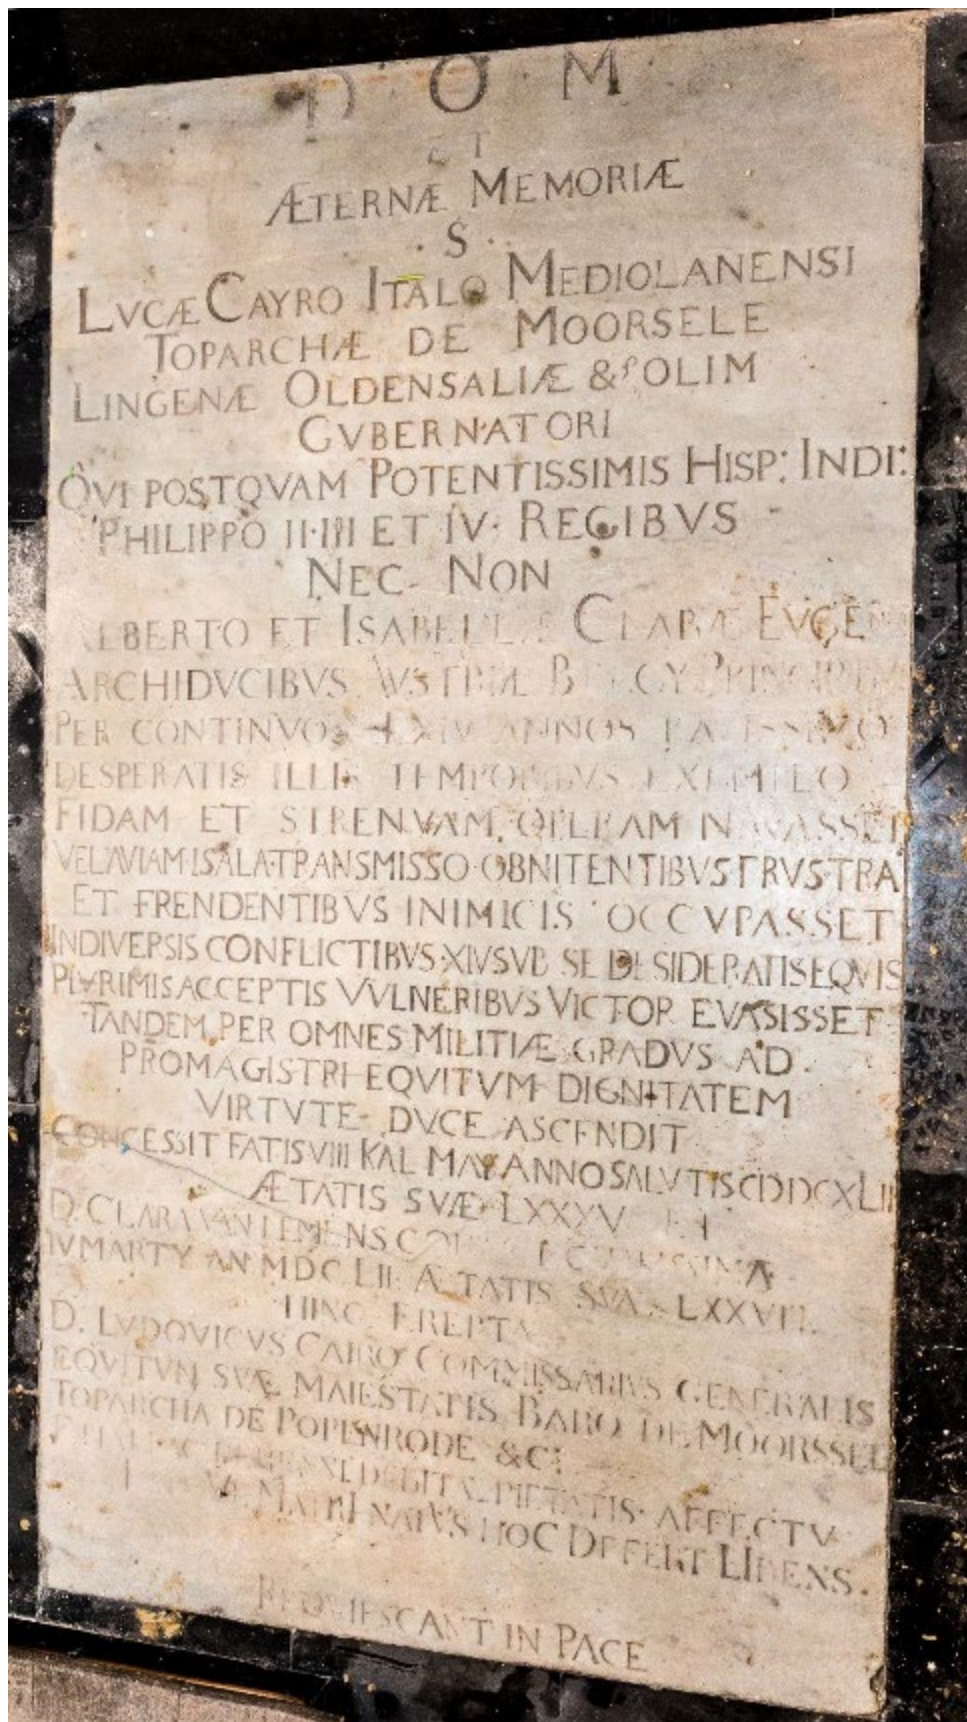 D O M
ET
ÆTERNÆ MEMORIÆ
·S·
LVCÆ CAYRO ITALO MEDIOLANENSI
TOPARCHÆ DE MOORSELE
LINGENÆ OLDENSALIÆ &c OLIM
GVBERNATORI
QVI POSTQVAM POTENTISSIMIS HISP: INDI:
PHILIPPO II·III ET IV· REGIBVS
NEC- NON
ALBERTO ET ISABELLÆ CLARÆ EVGEN
ARCHIDVCIBVS AVSTRIÆ BELGY PRINCIPIBV
PER CONTINVOS ANNOS
DESPERATIS ILLIS TEMPORIBVS EXEMPLO
FIDAM ET STRENVAM OPERAM NAVASSET
VELAVIAM ISALA TRANSMISSO OBNITENTIBVS FRVSTRA
ET FRENDENTIBVS INIMICIS OCCVPASSET
IN DIVERSIS CONFLICTIBVS XIV SVB SE DESIDERATIS EQVIS
PLVRIMIS ACCEPTIS VVLNERIBVS VICTOR EVASISSET
TANDEM PER OMNES MILITIÆ GRADVS AD
PROMAGISTRI EQVITVM DIGNITATEM
VIRTVTE DVCE ASCENDIT
CONCESSIT FATIS VIII KAL MAY ANNO SALVTIS
ÆTATIS SVÆ LXXXV ET
D. CLARA VAN
IV MARTY AN MDCLII ÆTATIS SVÆ LXXVII
HINC EREPTA
D. LVDOVICVS CAIRO COMMISSARIVS GENERALIS
EQVITVM SVÆ MAIESTATIS BARO DE MOORSSEL
TOPARCHA DE POPENRODE &C:
DEBITÆ PIETATIS AFFECTV
MATRI NATVS HOC DEFERT LIBENS.
REQVIESCANT IN PACE